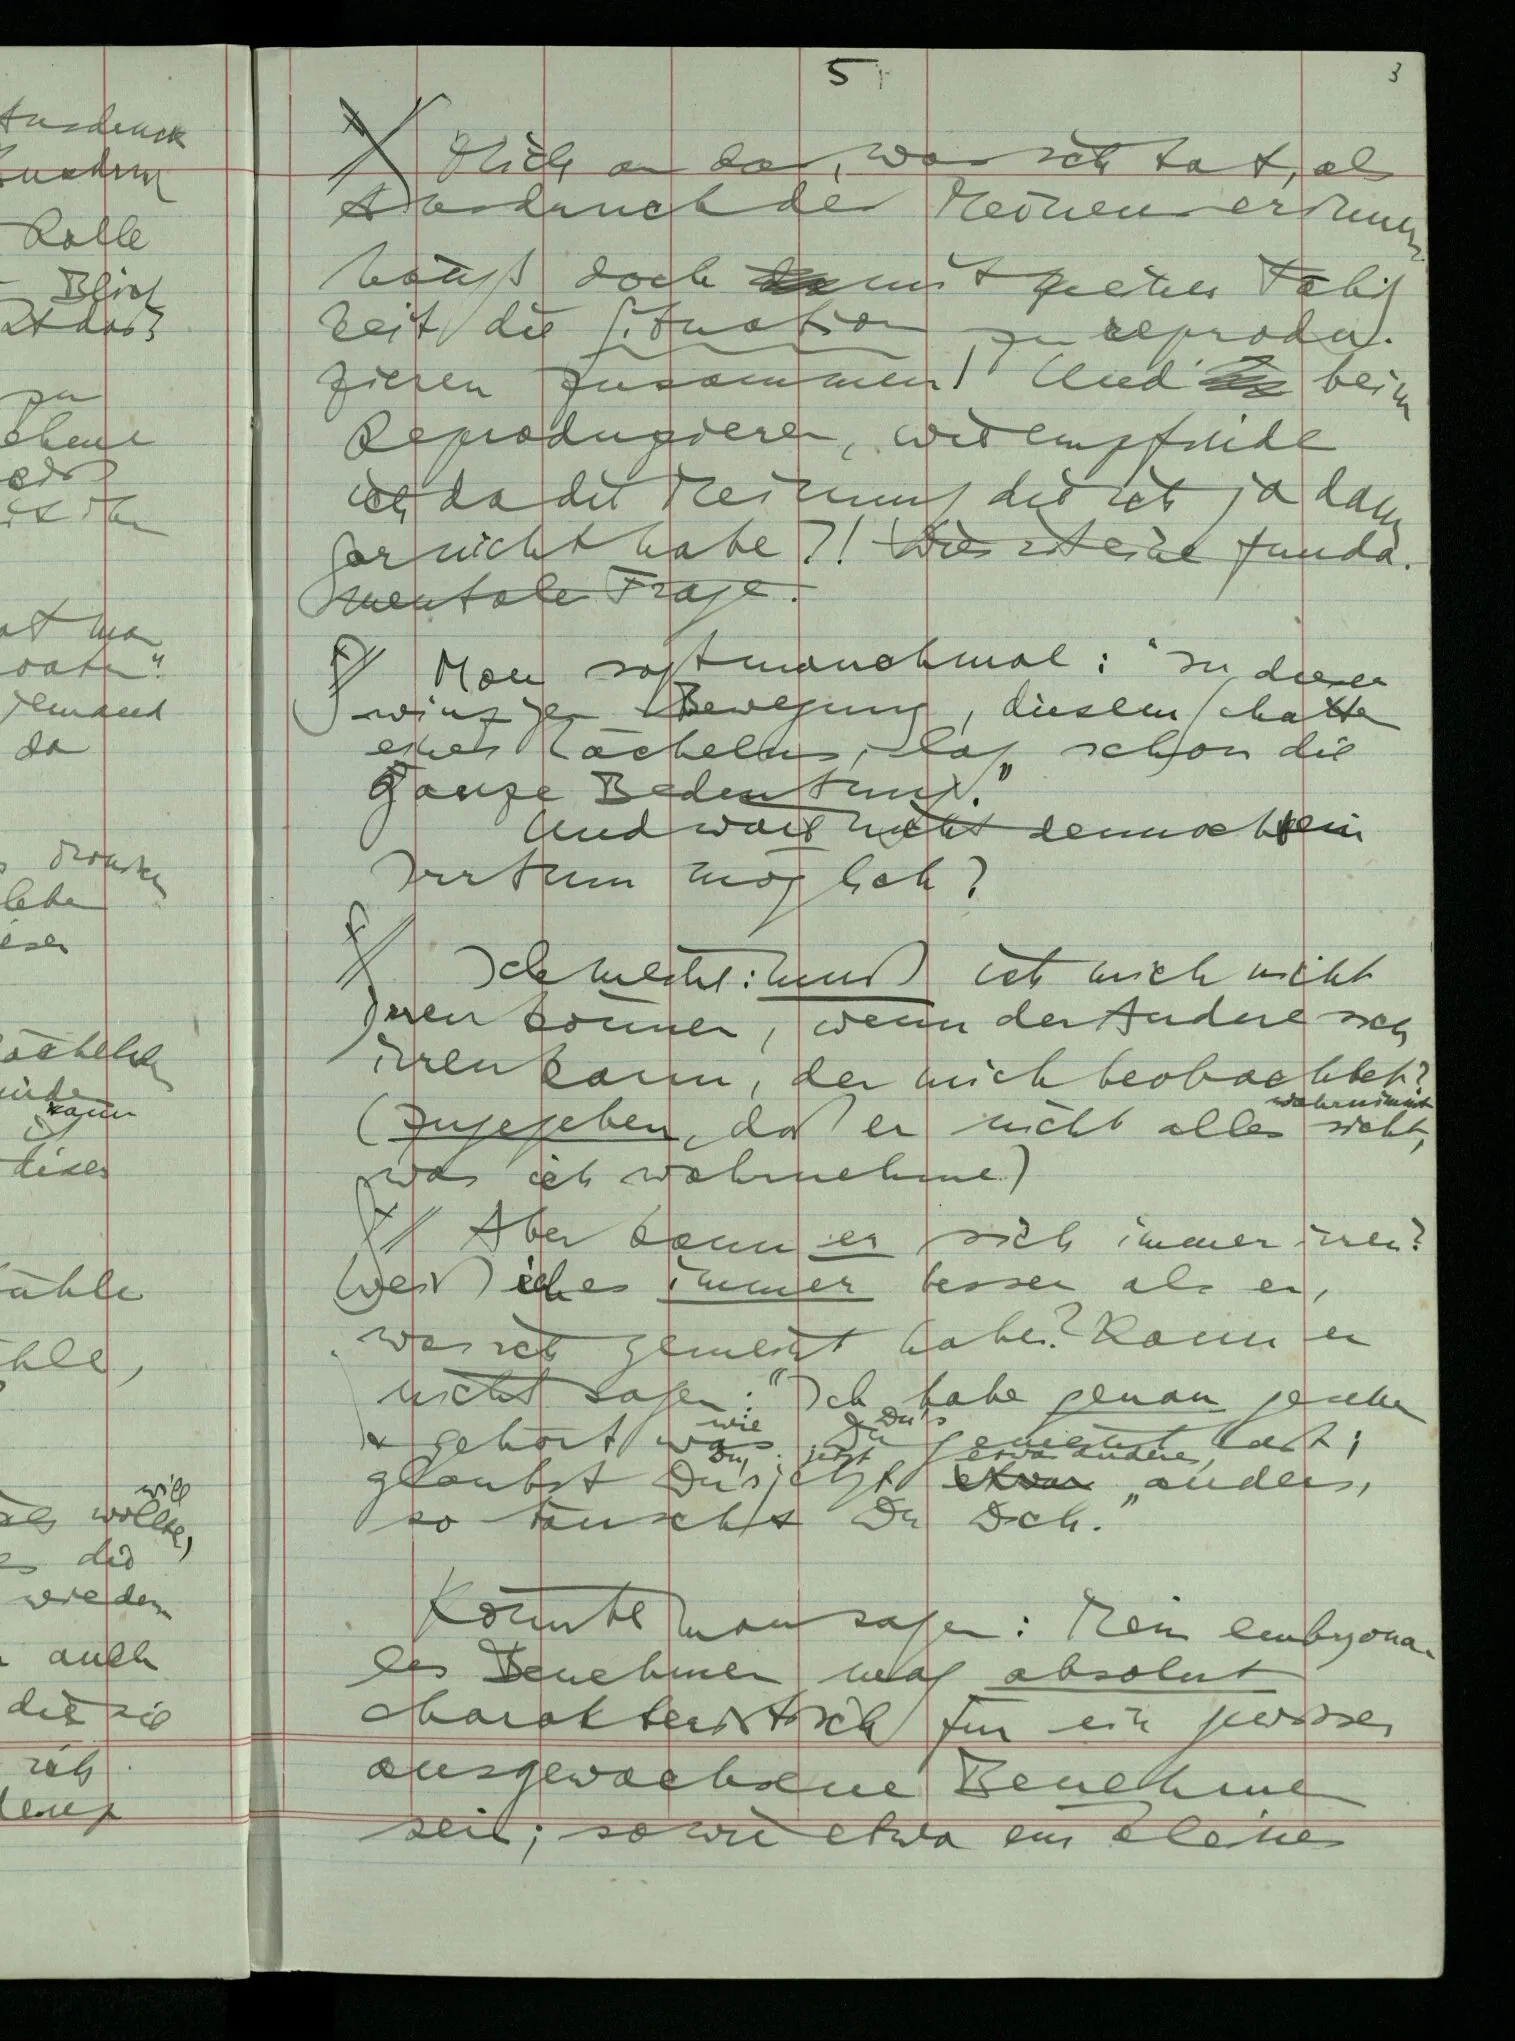 Ausdruck
Rolle
Blick
zu
da
leben
dieser
kann
dieser
fühle
fühle,
will
wollte,
wieder
auch
die sie
ich
5
3
Mich an das, was ich tat, als
Ausdruck des Meinens erinnern
hängt doch mit meiner Fähig
keit die Situation zu reprodu-
zieren zusammen! Und beim
Reproduzieren, wie empfinde
ich da die Meinung die ich ja dann
gar nicht habe?! Dies ist eine funda-
mentale Frage.
Man sagt manchmal: "In dieser
winzigen Bewegung, diesem Schatten
eines Lächelns, lag schon die
ganze Bedeutung."
Und war nicht dennoch ein
Irrtum möglich?
Ich meine: muß ich mich nicht
irren können, wenn der Andere sich
irren kann, der mich beobachtet?
wahrnimmt
(Zugegeben, daß er nicht alles sieht,
was ich wahrnehme)
Aber kann er sich immer irren?
Weiß ich es immer besser als er,
was ich gemeint habe? Kann er
nicht sagen: "Ich habe genau gesehen
wie Du's
& gehört was Du gemeint hast;
Du, jetzt etwas anderes,
glaubst Du's jetzt etwas anders,
so täuscht Du Dich."
Könnte man sagen: Mein embryona-
les Benehmen mag absolut
charakteristisch für ein gewisses
ausgewachsene Benehmen
sein; so wie etwa ein kleines